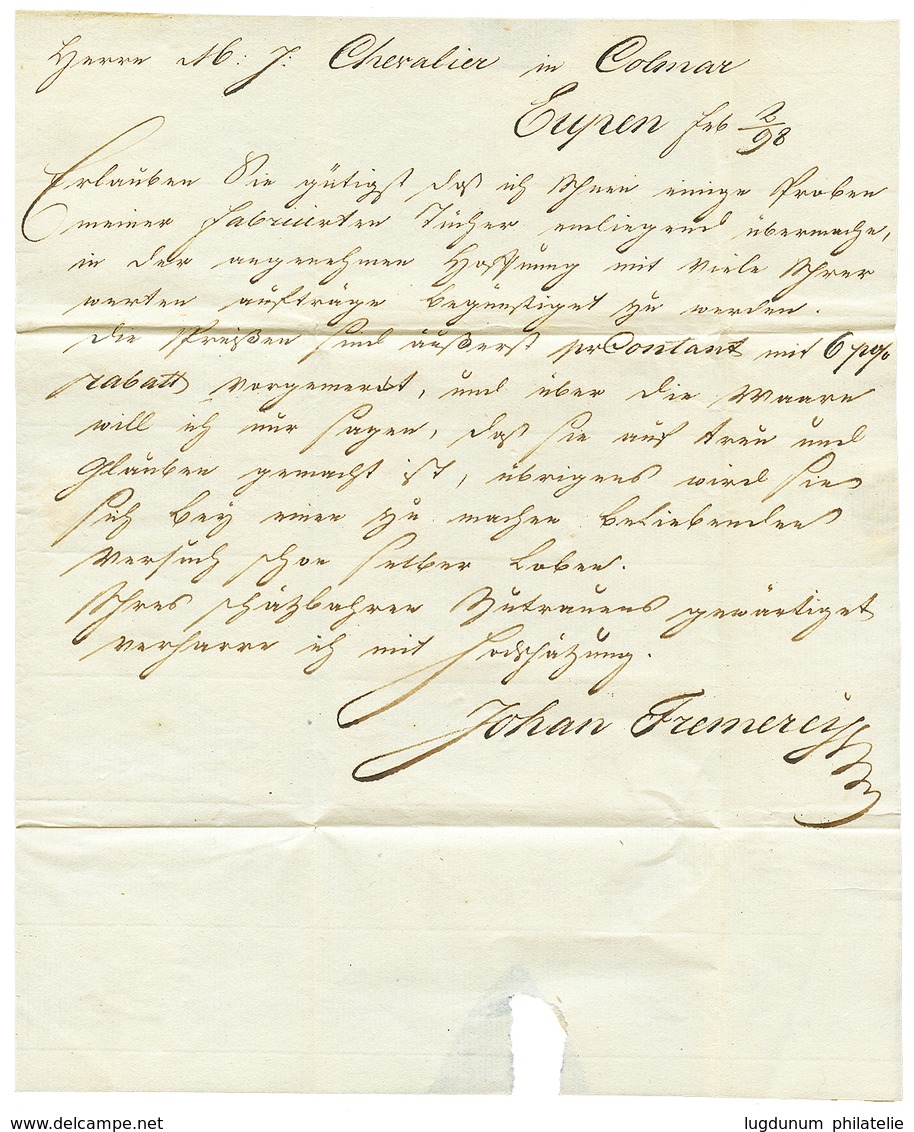 Herrn M: J: Chevalier in Colmar
Eupen Feb 2/98
Erlauben Sie gütigst daß ich Ihnen einige Proben
meiner fabricirten Tücher einliegend übermache,
in der angenehmen Hoffnung mit viele Ihrer
werten aufträge begünstiget zu werden.
die Preißen sind äußerst pr Contant mit 6 p%
rabatt vorgemerckt, und über die Waare
will ich nur sagen, daß sie auf treu und
Glauben gemacht ist, übrigens wird sie
sich bey einen zu machen beliebenden
Versuch schon selber Loben.
Ihres schätzbahren Zutrauens gewärtiget
verharre ich mit Hochschätzung.
Johan Fremerey
www.delcampe.net
lugdunum philatelie